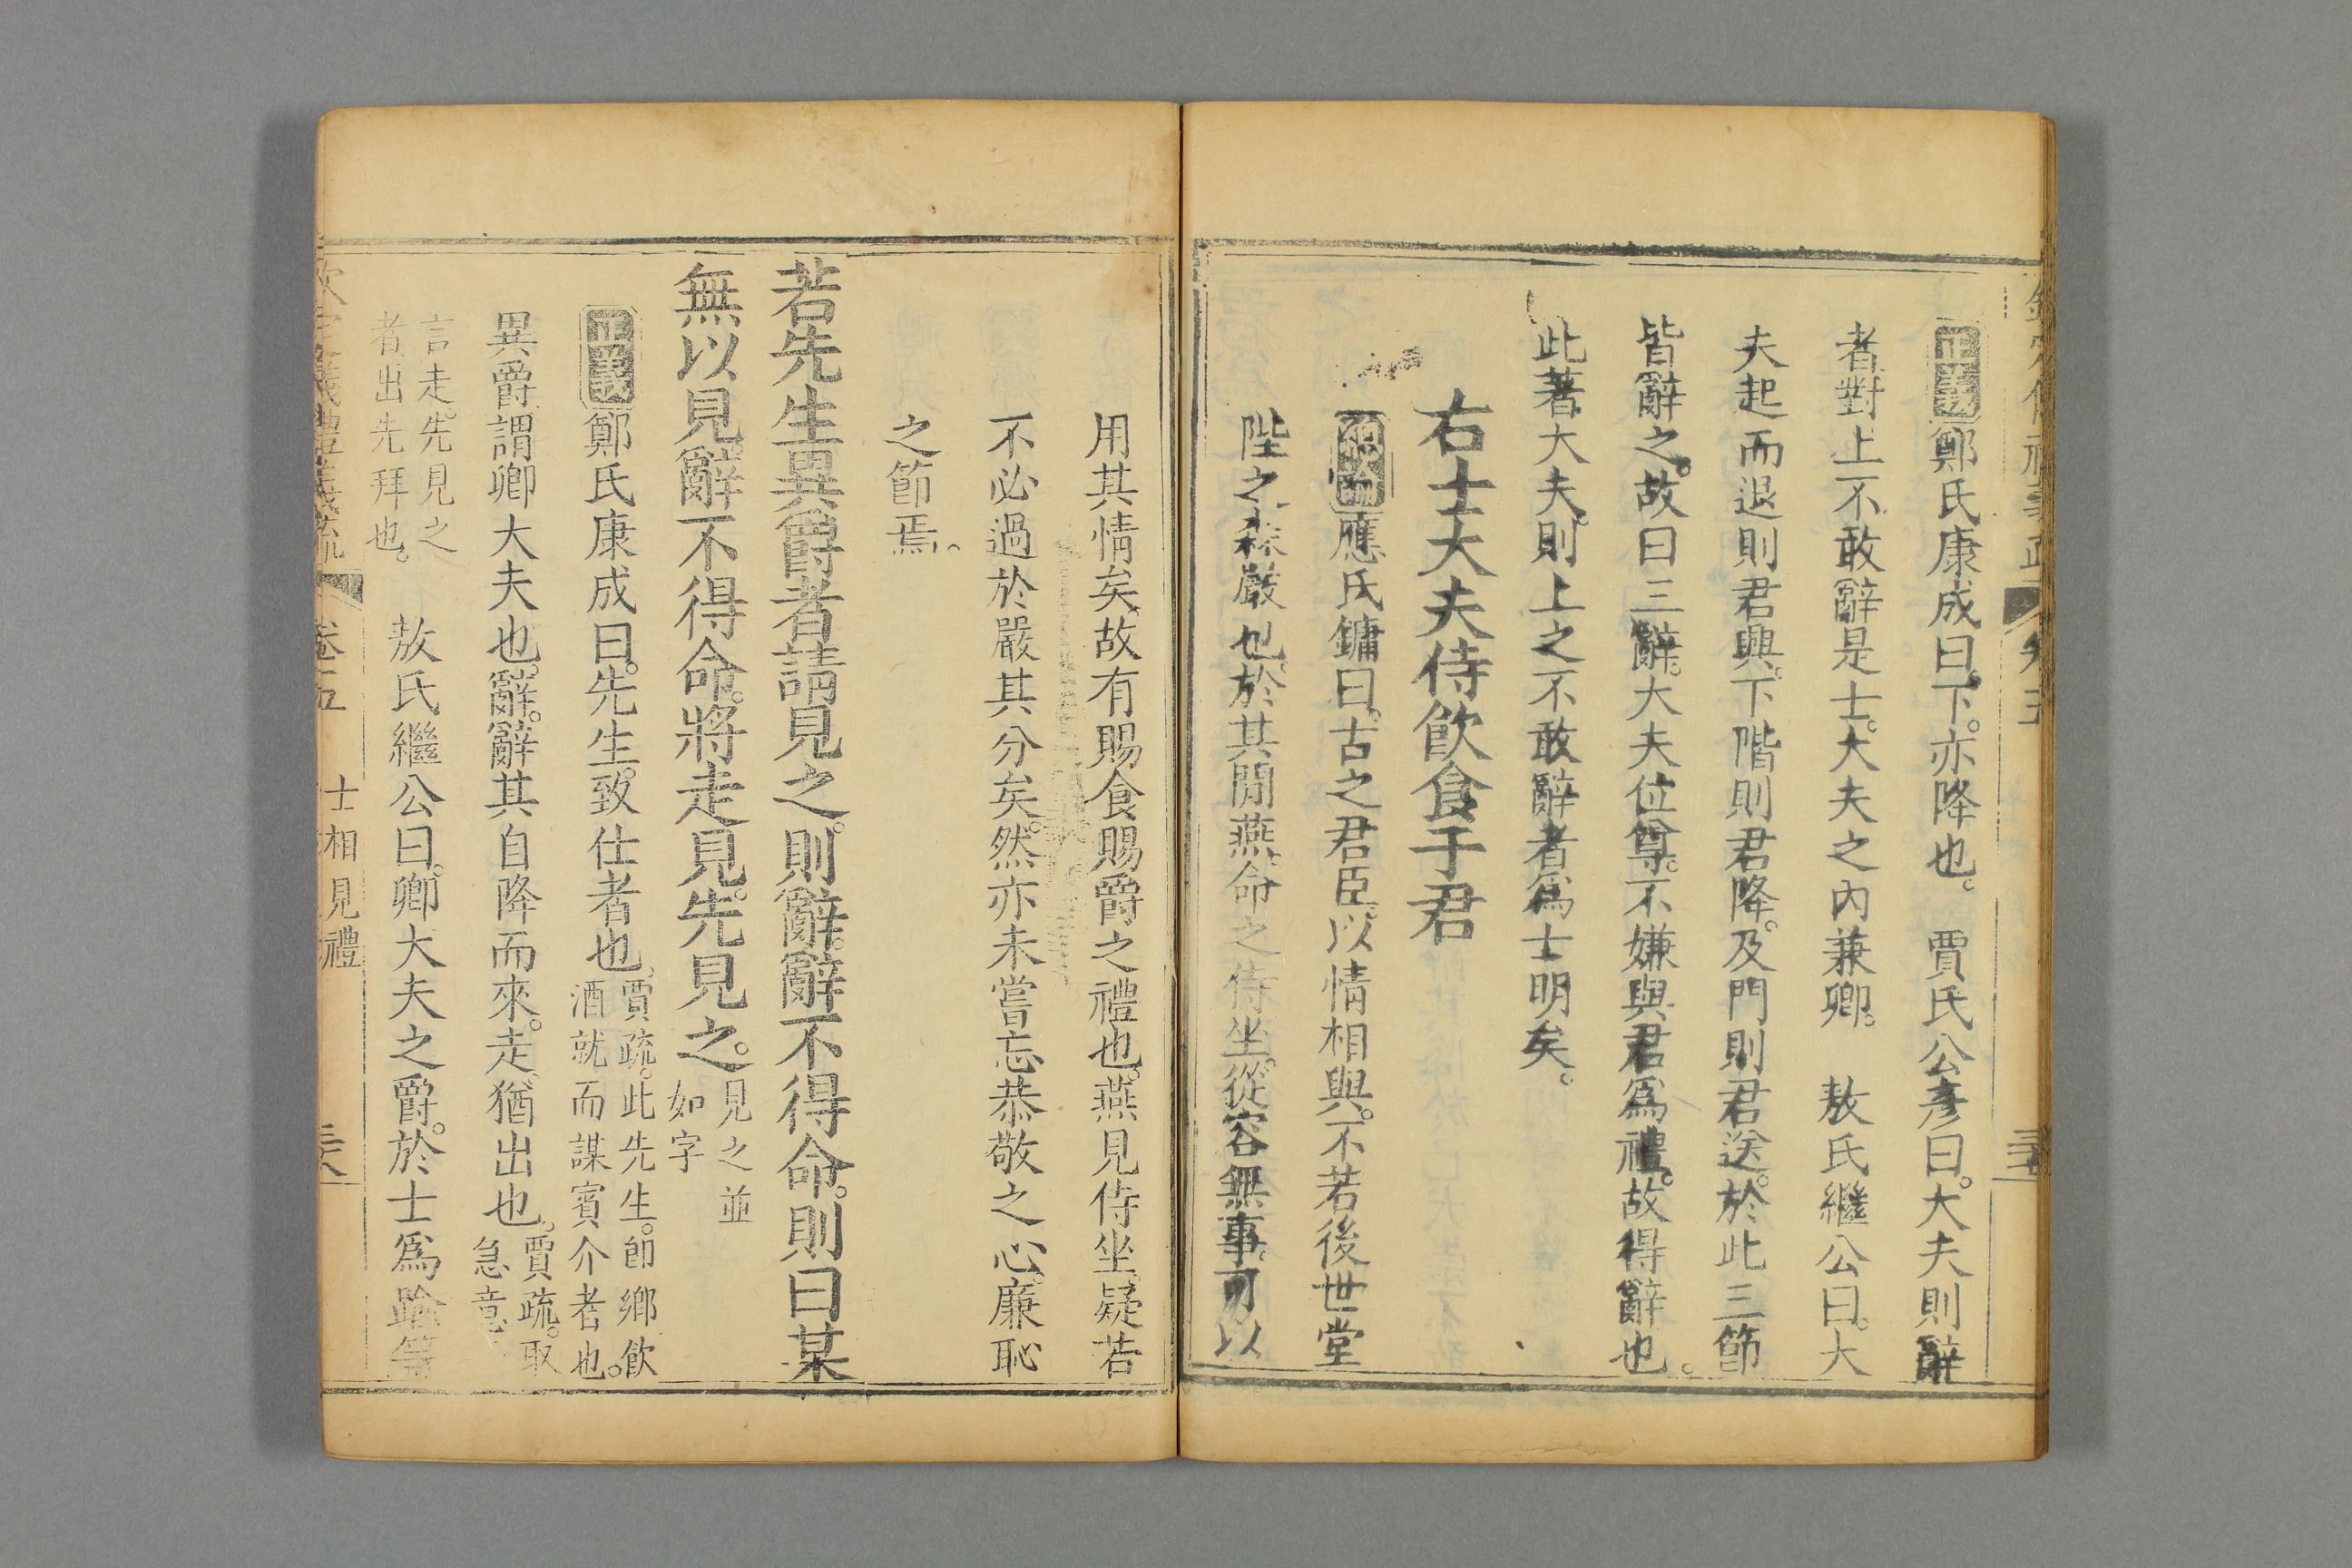 正義鄭氏康成曰。下。亦降也。　賈氏公彥曰。大夫則辭
者對上不敢辭是士。大夫之內兼卿。　敖氏繼公曰。大
夫起而退則君興。下階則君降。及門則君送。於此三節
皆辭之。故曰三辭。大夫位尊。不嫌與君爲禮。故得辭也。
此著大夫。則上之不敢辭者爲士明矣。
右士大夫侍飲食于君
總論應氏鏞曰。古之君臣。以情相與。不若後世堂
陛之森嚴也。於其閒燕。命之侍坐。從容無事。可以
用其情矣。故有賜食賜爵之禮也。燕見侍坐。疑若
不必過於嚴其分矣。然亦未嘗忘恭敬之心。廉恥
之節焉。
若先生異爵者請見之。則辭。辭不得命。則曰某
無以見。辭不得命。將走見。先見之。見之並
如字
正義鄭氏康成曰。先生。致仕者也。賈疏。此先生。卽鄉飲
酒就而謀賓介者也。
異爵謂卿大夫也。辭。辭其自降而來。走。猶出也。賈疏。取
急意
敖氏繼公曰。卿大夫之爵。於士爲踰等
言走。先見之
者。出先拜也。
欽定儀禮義疏　卷五　士相見禮　三六